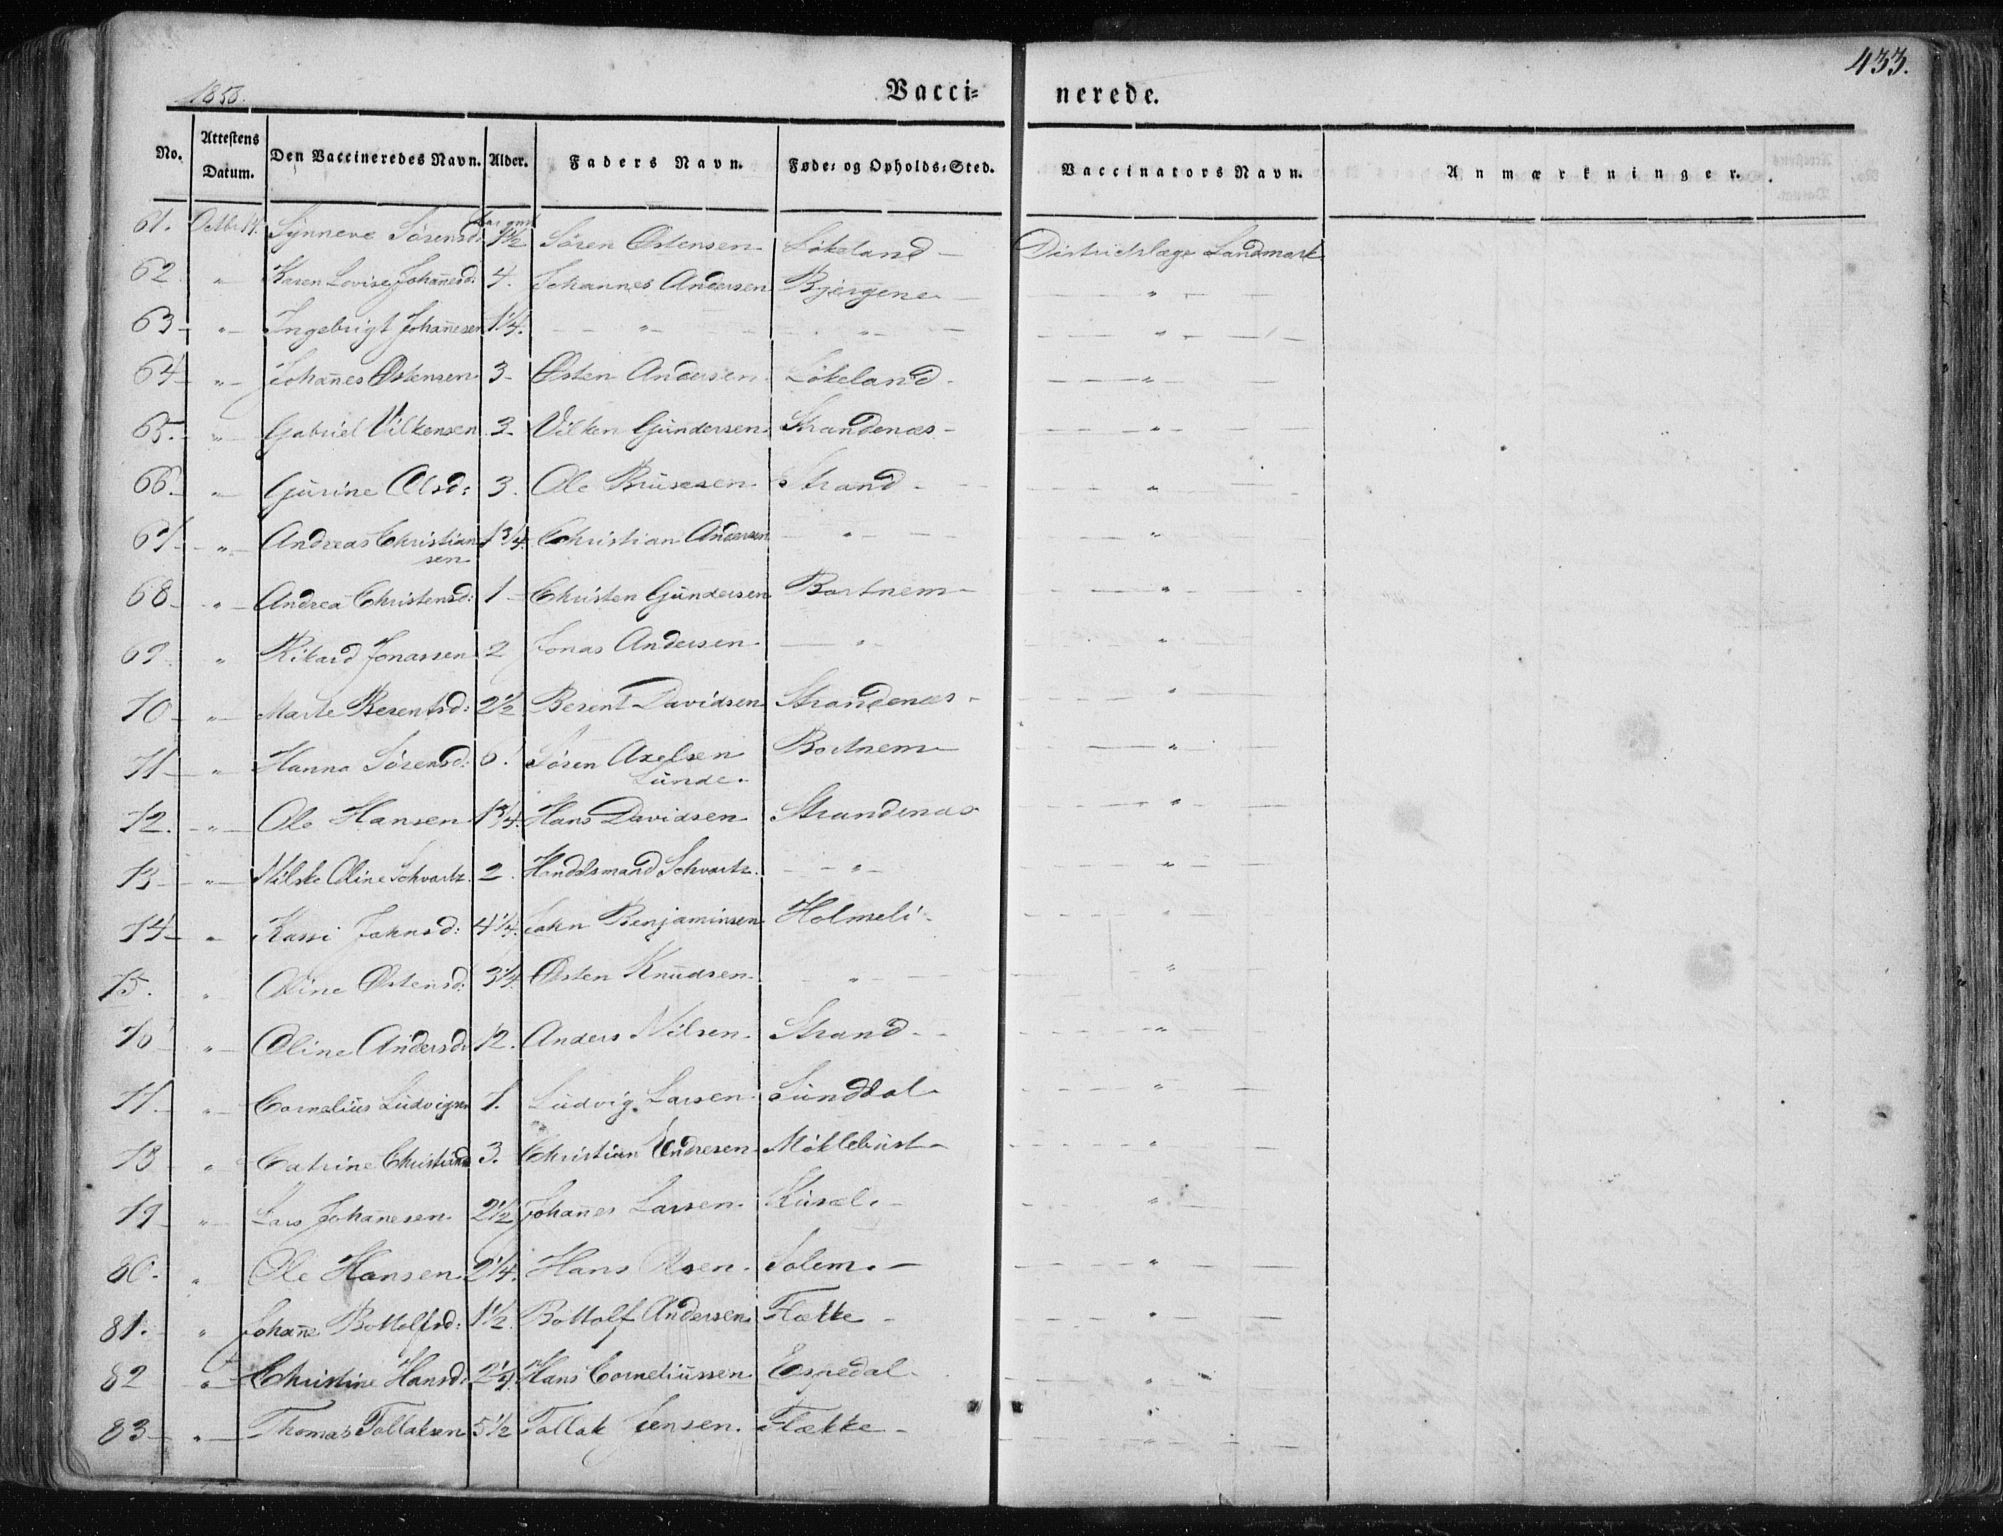 433.
1853. Vacci= nerede.
No. Attestens Datum. Den Vaccineredes Navn. Alder. Faders Navn. Føde= og Opholds=Sted. Vaccinators Navn. Anmærkninger.
61. Octbr 14. Synneve Sørensd: 1½ Søren Østensen Løkeland Districtslæge Landmark
62 " Karen Lovise Johañesd: 4. Johannes Andersen Bjergene "
63 " Ingebrigt Johañesen 1¼. " " "
64 " Johañes Østensen 3 Østen Andersen. Løkeland "
65. " Gabriel Vilkensen 3 Vilken Gundersen. Strandenæs "
66 " Gurine Olsd: 3. Ole Strand "
67 " Andreas Christian 1¾. Christian Andersen " "
sen
68 " Andrea Christensd: 1 Christen Gundersen Bortnem "
69 " Rikard Jonassen 2 Jonas Andersen " "
70 " Marte Berentsd: 2½ Berent Davidsen Strandenæs "
71 " Hanna Sørensd: 6. Søren Axelsen Bortnem "
Lunde.
72. " Ole Hansen 1¾. Hans Davidsen Strandenæs "
73 " Nilske Oline Schvartz. 2. Handelsmand Schvartz. " "
74 " Kassi Johnsd: 4¼. John Benjaminsen Holmeli "
75. " Oline Østensd: 3¼. Østen Knudsen. " "
76 " Oline Andersd: 12. Anders Nilsen. Strand "
77. " Cornelius Ludvigsen 1. Ludvig Larsen. Sunddal "
78 " Catrine Christiansd 3. Christian Andresen Møklebust "
79 " Lars Johañesen. 2½ Johañes Larsen. "
80. " Ole Hansen. 2¼. Hans Olsen. Solem. "
81. " Johañe Bottolfsd: 1½. Bottolf Andersen. Flække "
82 " Christine Hansd: Hans Corneliussen. Espedal "
83 " Thomas Tollaksen 5½ Tollak Jensen. Flække "